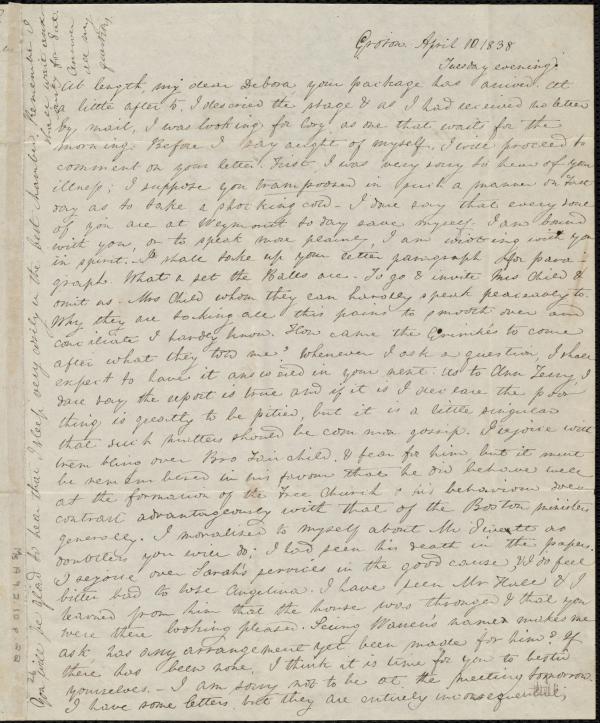 Groton April 10 1838
Tuesday evening.
At length, my dear Debora, your package has arrived. At
a little after 5, I descried the stage & as I had received no letter
by mail, I was looking for Cozy, as one that waits for the
morning. Before I say aught of myself, I will proceed to
comment on your letter. First, I was very sorry to hear of your
illness; I suppose you in such a manner on Fast
day as to take a shocking cold - I dare say that every one
of you are at Weymouth to day save myself. I am bound
with you, or to speak more plainly, I am with you
in spirit. I shall take up your letter paragraph for para-
graph. What a set the Balls are - To go & invite Mrs Child &
omit us - Mrs Child whom they can hardly speak peaceably to.
Why they are taking all this pains to smooth over and
conciliate I hardly know. How came the Grimkés to come
after what they told me? Whenever I ask a question, I shall
expect to have it answered in your next. As to Ann Terry, I
dare say the report is true and if it is I declare the poor
thing is greatly to be pitied, but it is a little singular
that such matters should be common gossip. I rejoice with
trembling over Bro Fairchild, & fear for him but it must
be remembered in his favour that he did behave well
at the formation of the Free Church & his behaviour does
contrast advantageously with that of the Boston ministers
generally. I moralised to myself about Mr as
doubtless you will do; I had seen his death in the papers.
I rejoice over Sarah's services in the good cause & I do feel
bitter bad to lose Angelina. I have seen Mr Hull & I
learned from him that the house was thronged & that you
were there looking pleased. Seeing Warren's name makes me
ask has any arrangement yet been made for him? If
there has been none, I think it is time for you to bestir
yourselves. - I am sorry not to be at the meeting tomorrow.
I have some letters, but they are entirely inconsequential;
You will be glad to hear that I sleep very cosily in the bed chamber. Remember I
answer
all my
questions